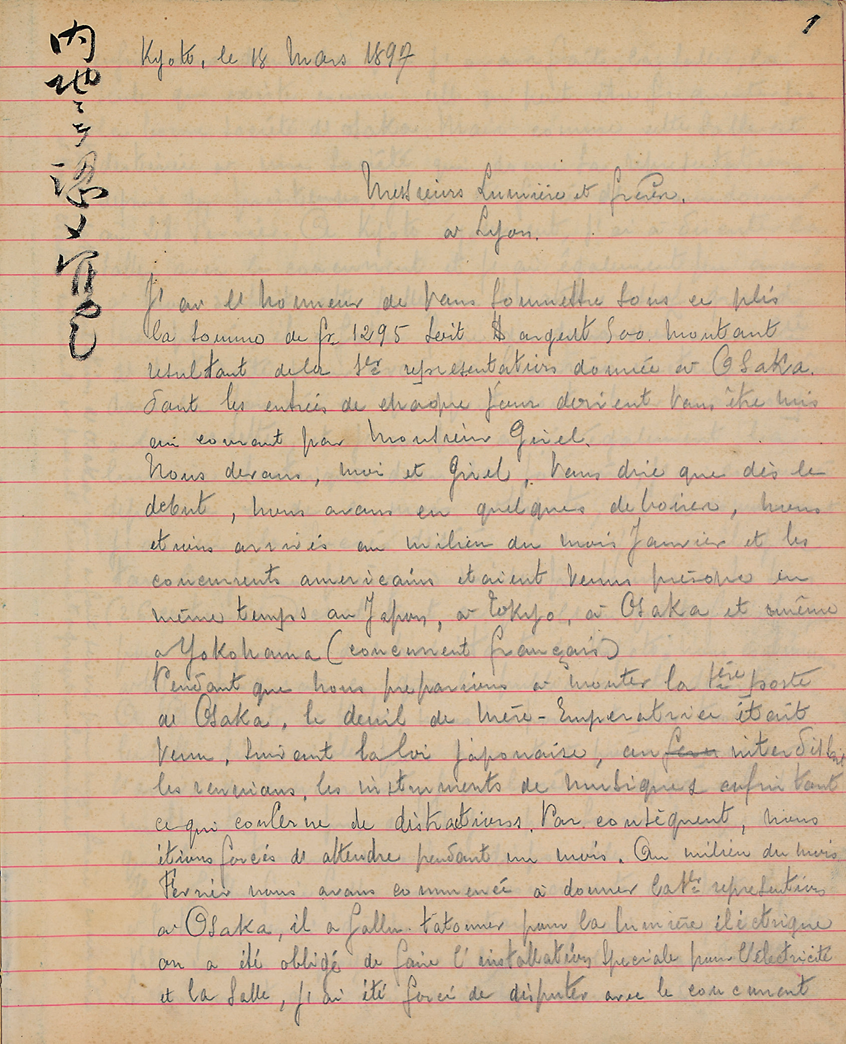 1
内地ニテ認メ
Kyoto, le 18 Mars 1897
Messieurs Lumière et frères.
a Lyon.
J'ai l'honneur de vous soumettre sous ce plis
la somme de fr 1295 soit $ argent 500. montant
resultant de la 1ère representations donnée a OSaKa.
dont les entrées de chaque jour doivent vous être mis
au courant par Monsieur Girel.
Nous devons, moi et Girel, vous dire que dès le
debut, nous avons eu quelques deboires, nous
etions arrivés au milieu du mois Janvier et les
concurrents americains etaient venus presque en
même temps au Japon, a Tokyo, a OSaKa et même
a Yokohama (concurrent français)
Pendant que nous preparions a monter la 1ère poste
de OSaKa, le deuil de Mère-Emperatrice était
venu, suivant la loi japonaise, on interdisait
les reunions, les instruments de musiques enfin tout
ce qui concerne de distractions. Par consèquent, nous
étions forcés de attendre pendant un mois. Au milieu du mois
Fevrier nous avons commencé a donner la 1ère representation
a OSaKa, il a fallu tatonner pour la lumière électrique
on a été obligé de faire l'installation speciale pour l'électricité
et la Salle, j'ai été forcé de disputer avec le concurrent